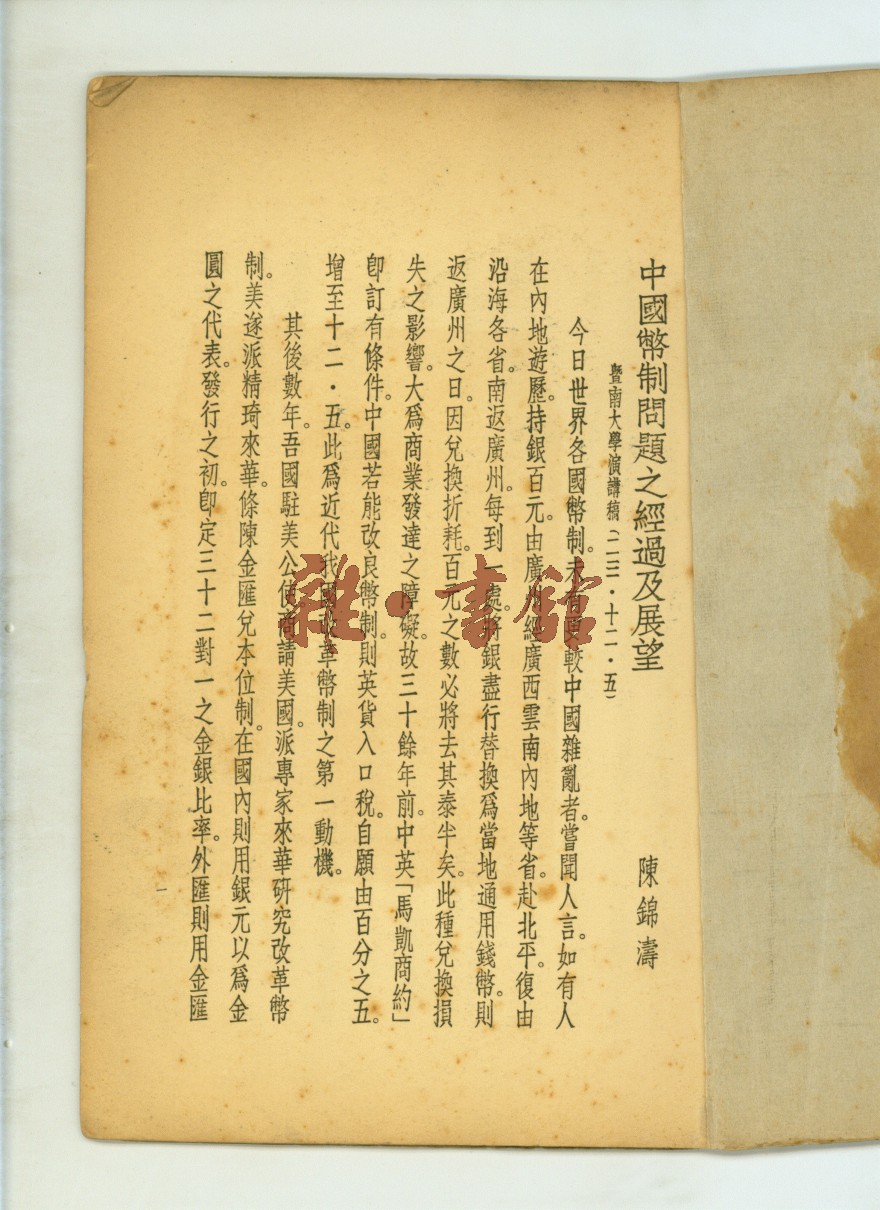 中國幣制問題之經過及展望
暨南大學演講稿(二三·十二·五)
陳錦濤
今日世界各國幣制。未有更較中國雜亂者。嘗聞人言。如有人
在內地遊歷。持銀百元。由廣州經廣西雲南內地等省。赴北平。復由
沿海各省。南返廣州。每到一處。將銀盡行替換爲當地通用錢幣。則
返廣州之日。因兌換折耗。百元之數必將去其泰半矣。此種兌換損
失之影響。大爲商業發達之障礙。故三十餘年前。中英「馬凱商約」
卽訂有條件。中國若能改良幣制。則英貨入口稅。自願由百分之五。
增至十二·五。此爲近代我國改革幣制之第一動機。
其後數年。吾國駐美公使商請美國。派專家來華研究改革幣
制。美遂派精琦來華。條陳金匯兌本位制。在國內則用銀元以爲金
圓之代表。發行之初。卽定三十二對一之金銀比率。外匯則用金匯
一
雜·書館